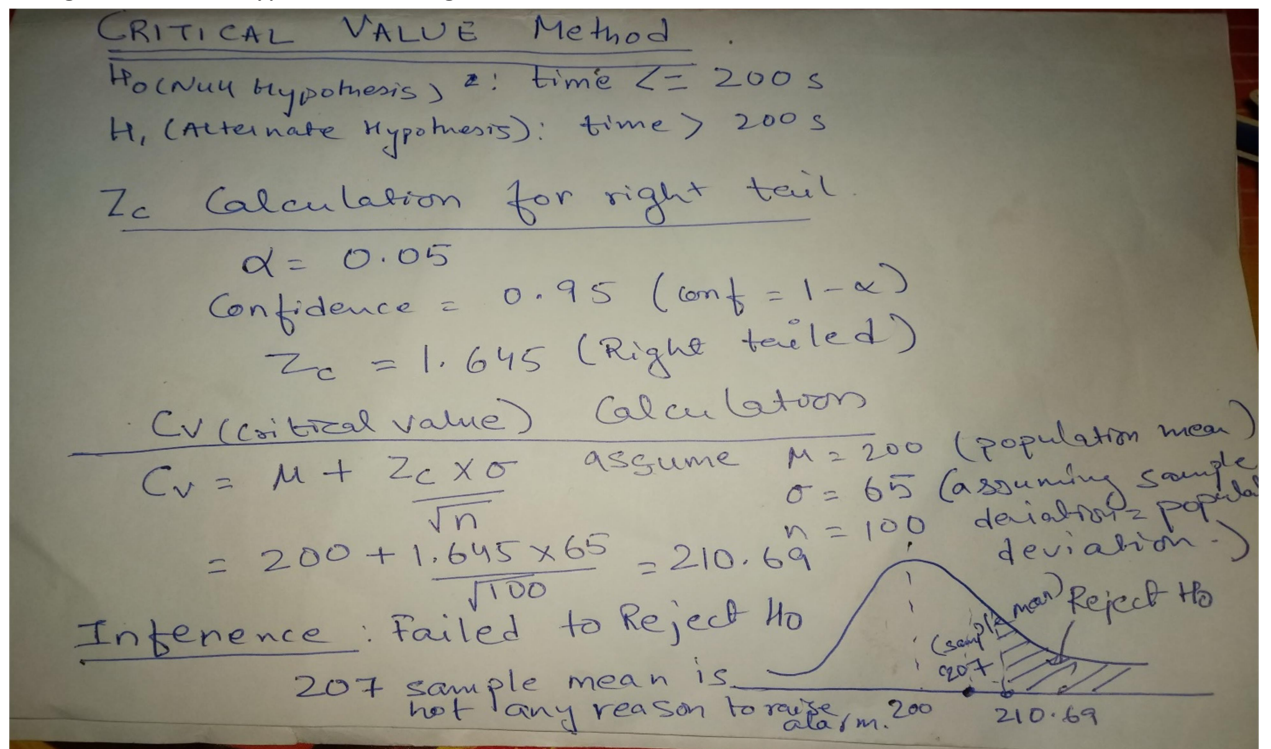 CRITICAL VALUE Method
H0 (Null Hypothesis) : time <= 200 s
H1 (Alternate Hypothesis): time > 200 s
Zc Calculation for right tail
α = 0.05
Confidence = 0.95 (conf = 1-α)
Zc = 1.645 (Right tailed)
CV (critical value) Calculation
Cv = μ + Zc × σ / √n assume μ = 200 (population mean)
σ = 65 (assuming sample
n = 100 deviation = popula
deviation.)
= 200 + 1.645 × 65 / √100 = 210.69
Inference : Failed to Reject H0
207 sample mean is
not any reason to raise
alarm.
(sample mean)
207
Reject H0
200
210.69